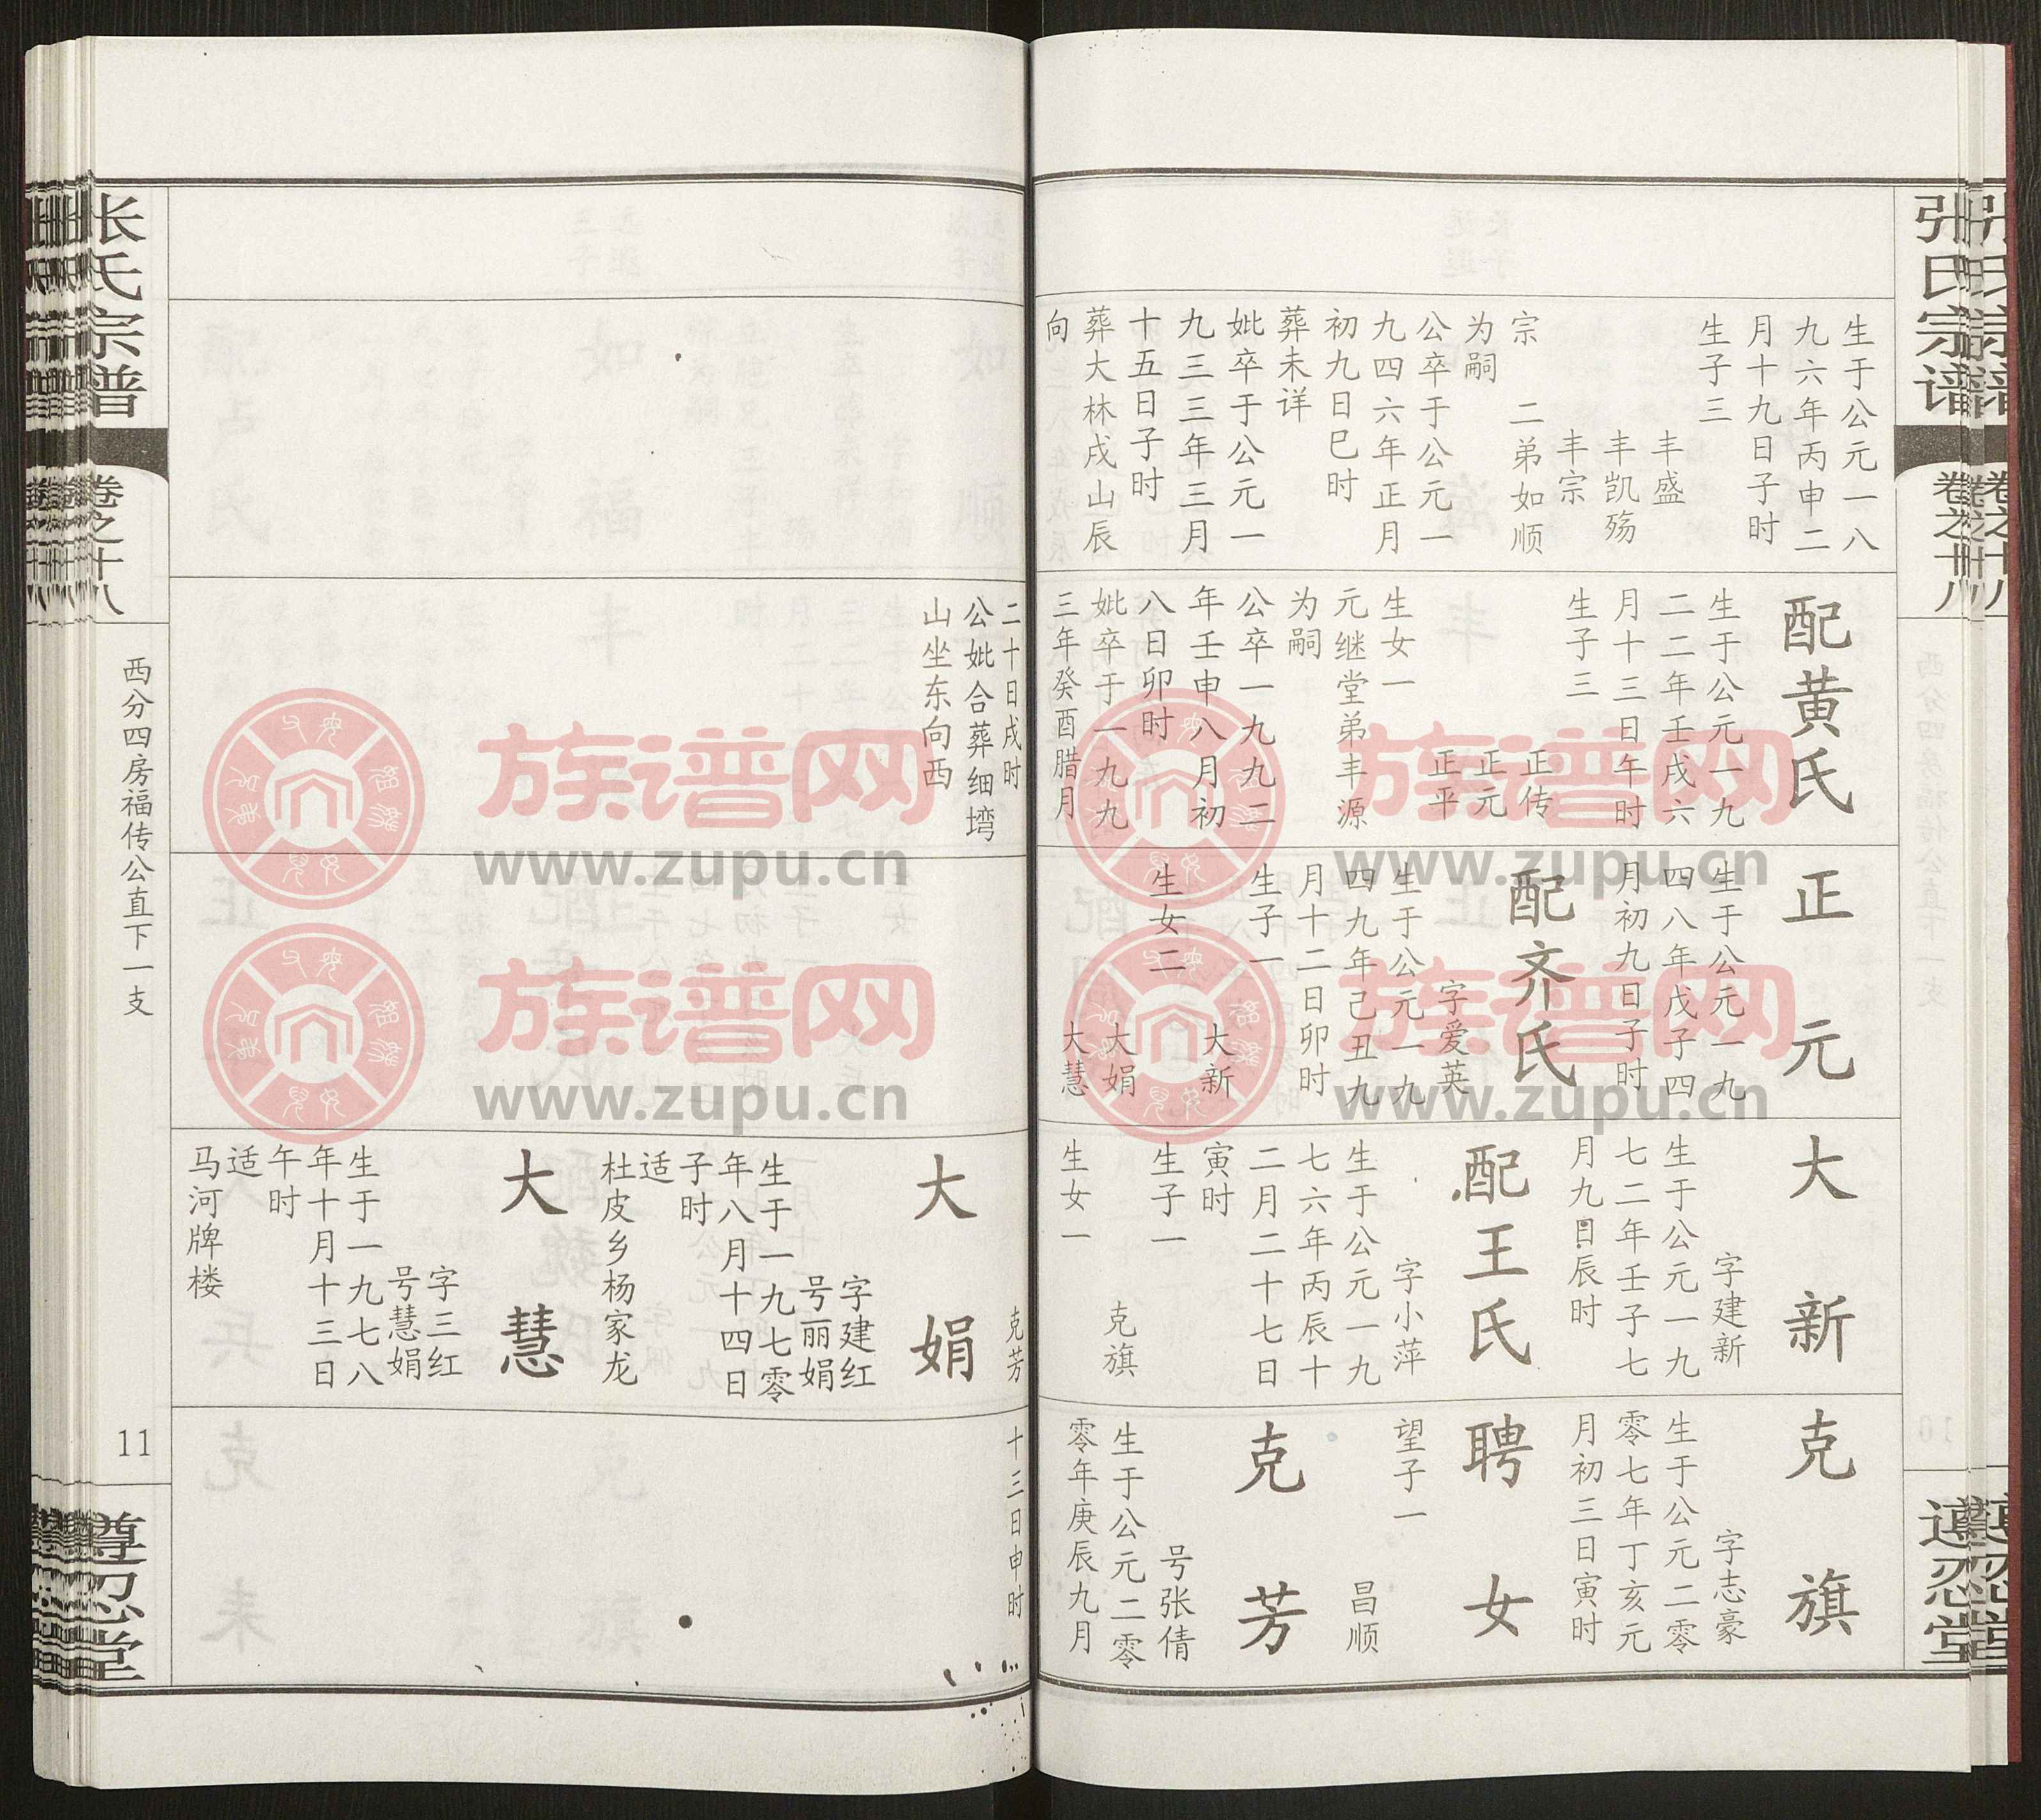 张氏宗谱
卷之十八
遵忍堂
生于公元一八
九六年丙申二
月十九日子时
生子三
丰盛
丰凯殇
丰宗
宗　二弟如顺
为嗣
公卒于公元一
九四六年正月
初九日巳时
葬未详
妣卒于公元一
九三三年三月
十五日子时
葬大林戌山辰
向
配黄氏
生于公元一九
二二年壬戌六
月十三日午时
生子三
正传
正元
正平
生女一
元继堂弟丰源
为嗣
公卒一九九二
年壬申八月初
八日卯时
妣卒于一九九
三年癸酉腊月
正元
生于公元一九
四八年戊子四
月初九日子时
配齐氏
字爱英
生于公元一九
四九年己丑九
月十二日卯时
生子一
大新
生女二
大娟
大慧
大新
字建新
生于公元一九
七二年壬子七
月九日辰时
配王氏
字小萍
生于公元一九
七六年丙辰十
二月二十七日
寅时
生子一
克旗
生女一
克旗
字志豪
生于公元二零
零七年丁亥元
月初三日寅时
聘女
望子一
昌顺
克芳
号张倩
生于公元二零
零年庚辰九月
二十日戌时
公妣合葬细塆
山坐东向西
克芳
大娟
字建红
号丽娟
生于一九七零
年八月十四日
子时
适
杜皮乡杨家龙
大慧
字三红
号慧娟
生于一九七八
年十月十三日
午时
适
马河牌楼
十三日申时
张氏宗谱
卷之十八
西分四房福传公直下一支
11
遵忍堂
族谱网
www.zupu.cn
族谱网
www.zupu.cn
族谱网
www.zupu.cn
族谱网
www.zupu.cn